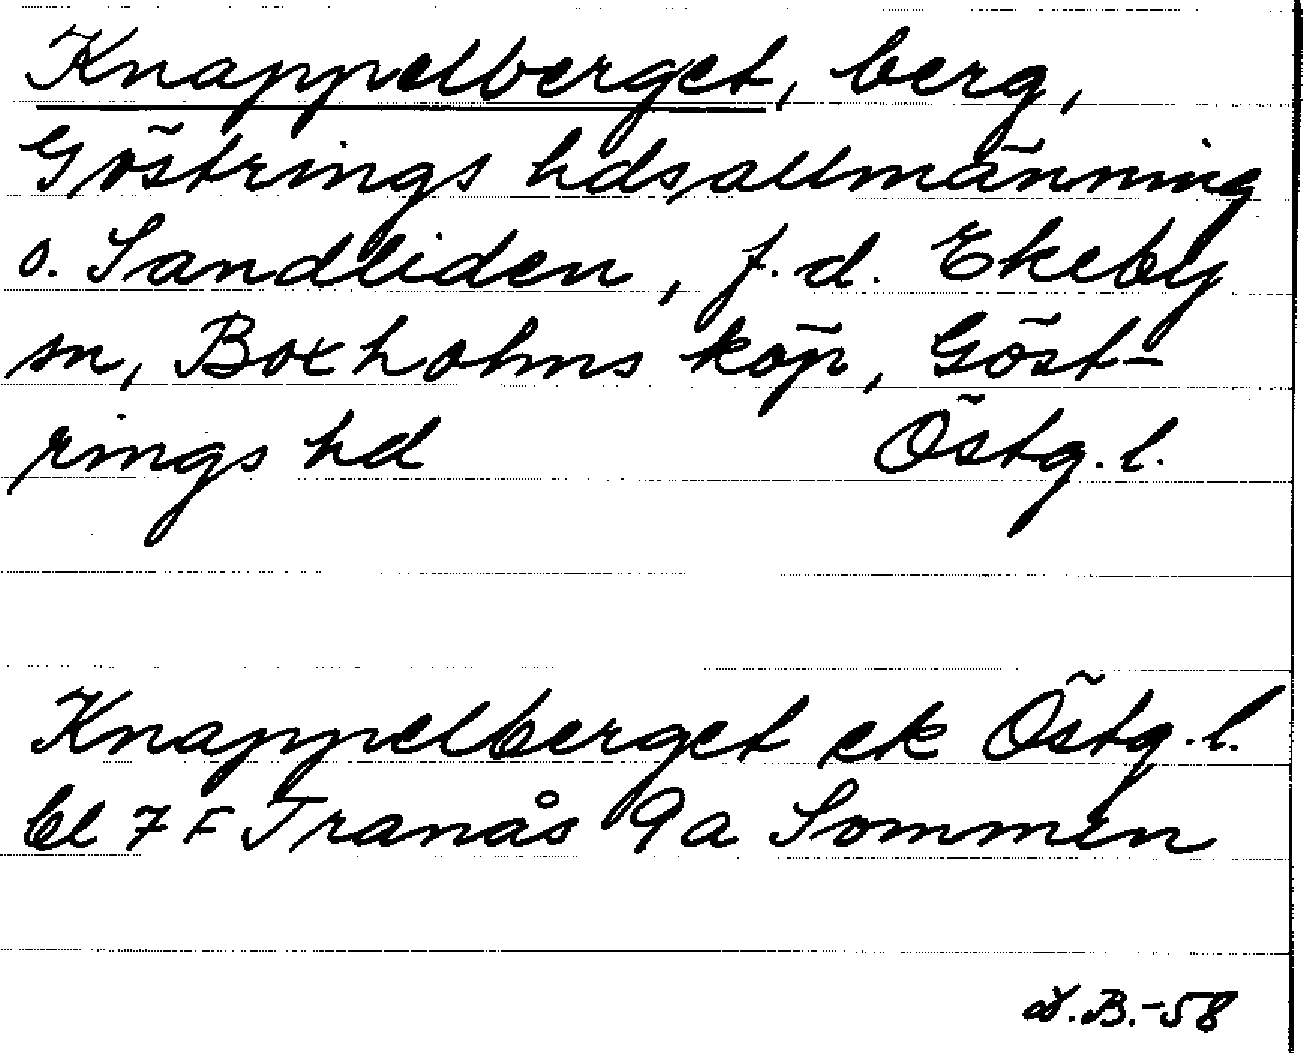 Knappelberget, berg,
Göstrings hdsallmänning
o. Sandliden, f.d. Ekeby
sn, Boxholms köp, Göst-
rings hd Östg.l.
Knappelberget ek Östg.l.
bl 7F Tranås 9a Sommen
B.-58